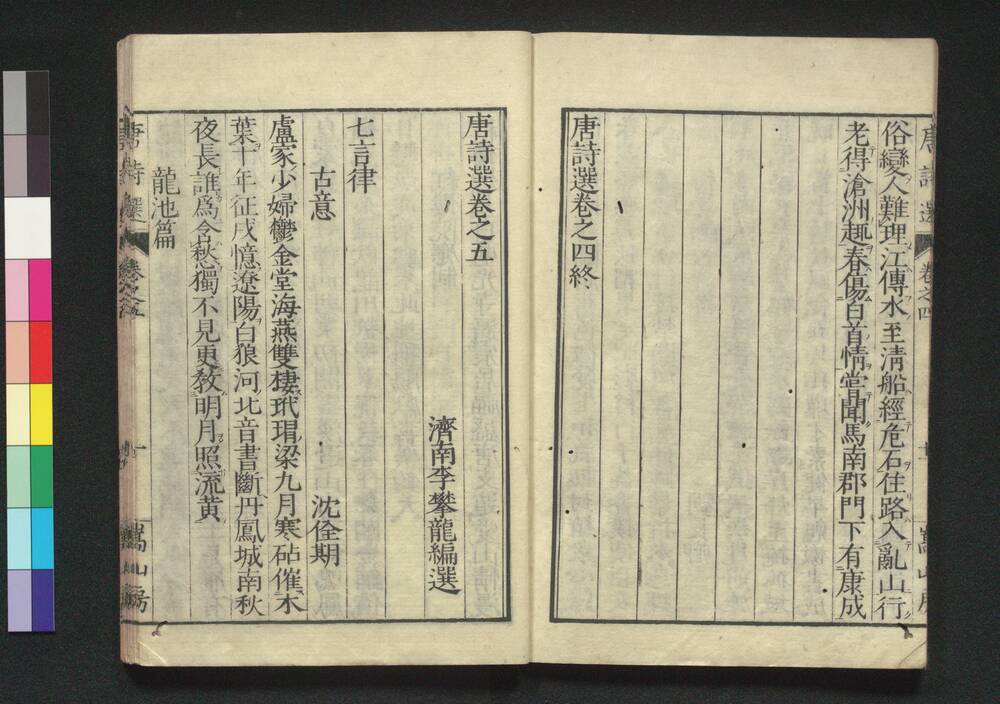 俗變人難理江傳水至淸船經危石住路入亂山行
老得滄洲趣春傷白首情甞聞馬南郡門下有康成
唐詩選卷之四終
唐詩選 卷之四
嵩山房
唐詩選卷之五
濟南李攀龍編選
七言律
古意 沈佺期
盧家少婦鬱金堂海燕雙棲玳瑁梁九月寒砧催木
葉十年征戍憶遼陽白狼河北音書斷丹鳳城南秋
夜長誰爲含愁獨不見更敎明月照流黄
龍池篇
唐詩選 卷之五
嵩山房